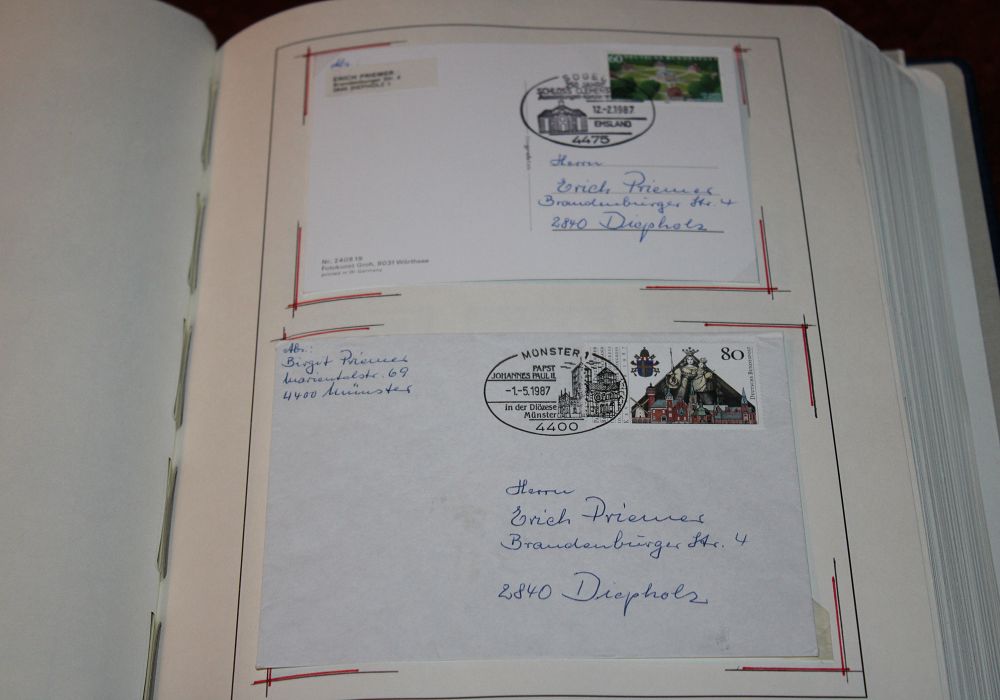 Abs.
ERICH PRIEMER
Brandenburger Str. 4
2840 DIEPHOLZ 1
60
SÖGEL
250 JAHRE
SCHLOSS CLEMENS
12.-2.1987
EMSLAND
4475
Herrn
Erich Priemer
Brandenburger Str. 4
2840 Diepholz
Nr. 2408.19
Fotokunst Groh, 8031 Wörthsee
printed in W. Germany
Abs.:
Birgit Priemer
Marientalstr. 69
4400 Münster
MÜNSTER 1
PAPST
JOHANNES PAUL II.
-1.-5.1987
in der Diözese
Münster
4400
80
Deutsche Bundespost
Herrn
Erich Priemer
Brandenburger Str. 4
2840 Diepholz